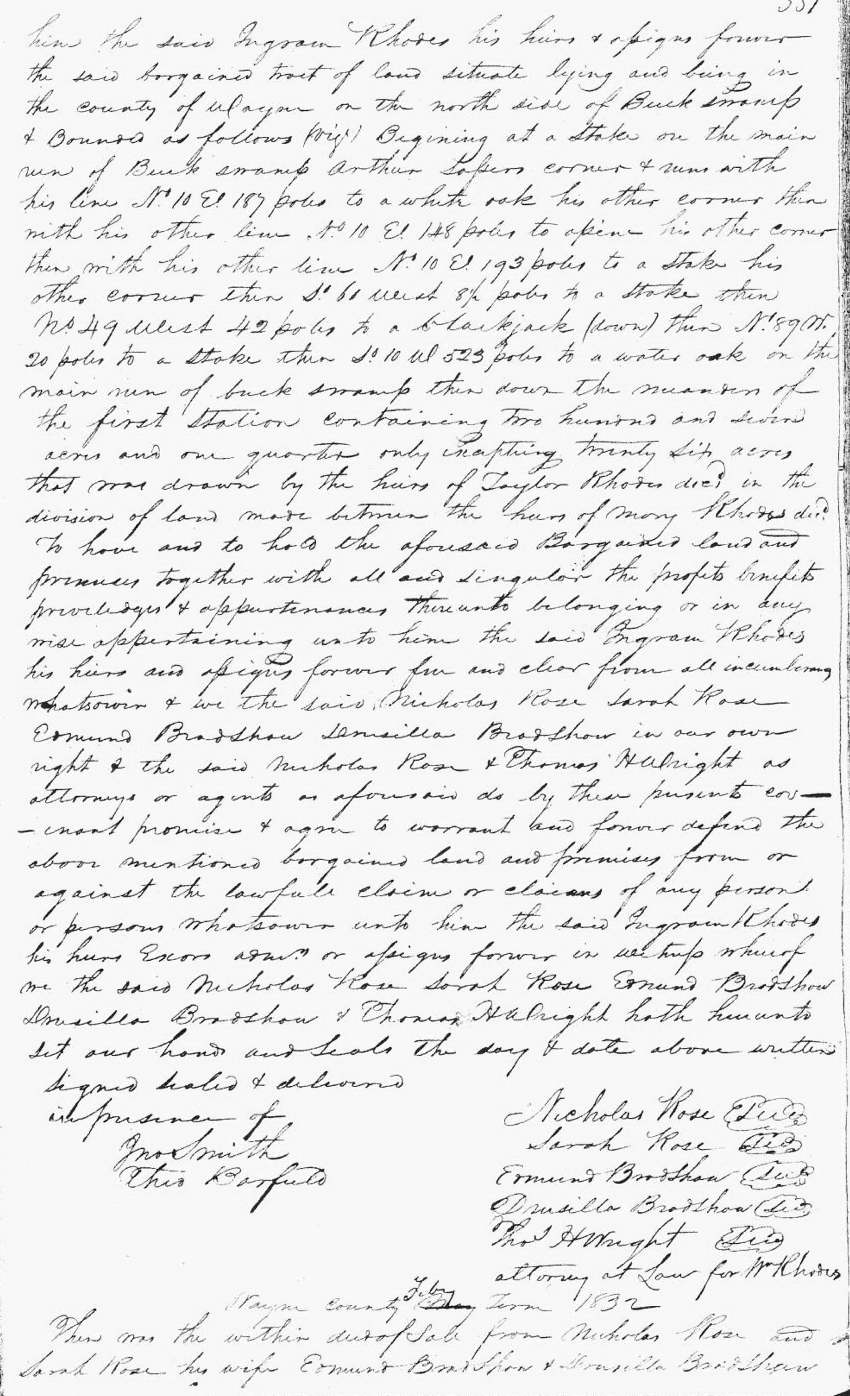 331
him the said Ingram Rhodes his heirs & assigns forever
the said bargained tract of land situate lying and being in
the county of Wayne on the north side of Buck swamp
& Bounded as follows (viz) Begining at a stake on the main
run of Buck swamp Arthur corner & runs with
his line No. 10 E. 187 poles to a white oak his other corner then
with his other line No. 10 E. 148 poles to a pine his other corner
then with his other line No. 10 E. 193 poles to a stake his
other corner then So. 60 West poles to a stake then
No 49 West 42 poles to a blackjack (down) then No. 89 W.
20 poles to a stake then So. 10 W 523 poles to a water oak on the
main run of buck swamp then down the meanders of
the first station containing two hundred and seven
acres and one quarter only excepting twenty six acres
that was drawn by the heirs of Taylor Rhodes decd in the
division of land made between the heirs of Mary Rhodes decd
To have and to hold the aforesaid Bargained land and
premises together with all and singular the profits benefits
priviledges & appurtenances thereunto belonging or in any
wise appertaining unto him the said Ingram Rhodes
his heirs and assigns forever free and clear from all incumbrances
whatsoever & we the said Nicholas Rose Sarah Rose
Edmund Bradshaw Drusilla Bradshaw in our own
right & the said Nicholas Rose & Thomas H Wright as
attorneys or agents as aforesaid do by these presents cov—
—enant promise & agree to warrant and forever defend the
above mentioned bargained land and premises form or
against the lawfull claim or claims of any person
or persons whatsoever unto him the said Ingram Rhodes
his heirs Exors admrs or assigns forever in witness whereof
we the said Nicholas Rose Sarah Rose Edmund Bradshaw
Drusilla Bradshaw & Thomas H Wright hath hereunto
set our hands and seals the day & date above written
signed sealed & delivered
in presence of
Nicholas Rose (Seal)
Jno Smith
Sarah Rose (Seal)
Barfield
Edmund Bradshaw (Seal)
Drusilla Bradshaw (Seal)
Thos H Wright (Seal)
attorney at Law for Wm Rhodes
Wayne County Feby May Term 1832
Then was the within deed of Sale from Nicholas Rose and
Sarah Rose his wife Edmund Bradshaw & Drusilla Bradshaw